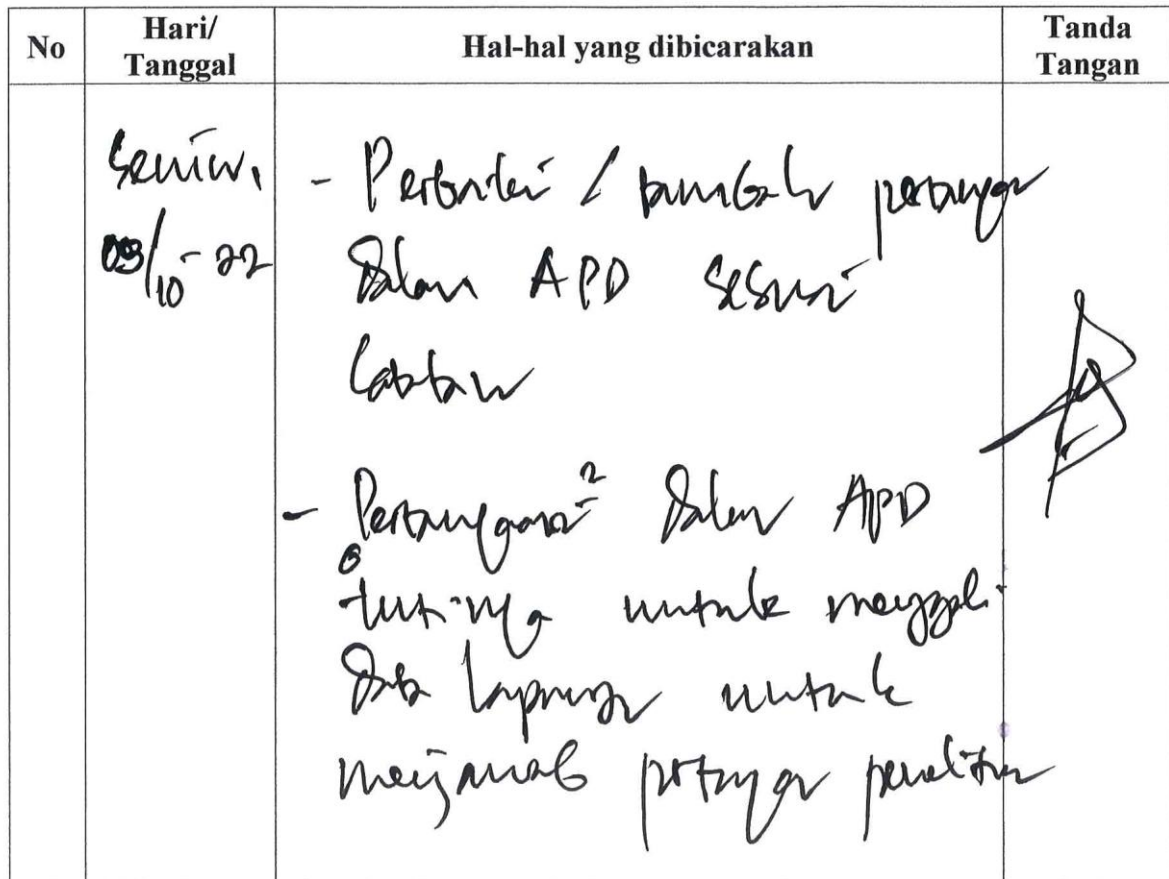 No
Hari/
Tanggal
Hal-hal yang dibicarakan
Tanda
Tangan
Senin,
03/10-22
- Perbaiki / tambah pertanyaan
dalam APD sesuai
catatan
- Pertanyaan² dalam APD
untuk menggali
data lapangan untuk
menjawab pertanyaan penelitian